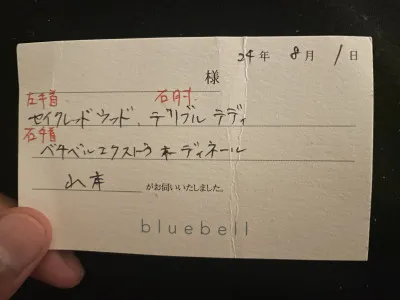 24年 8月 1日
様
左手首 右肘
セイクレッドウッド、テリブル テディ
右手首
ベチベルエクストラオーディネール
山本 がお伺いいたしました。
bluebell